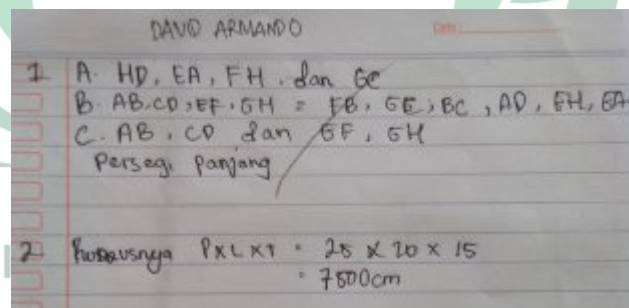 DAVID ARMANDO
Date:
1 A. HD, EA, FH, dan GC
B. AB, CD, EF, GH = FB, GE, BC, AD, EH, EA
C. AB, CD dan EF, GH
Persegi Panjang
2 P x L x T = 25 x 20 x 15
= 7500cm